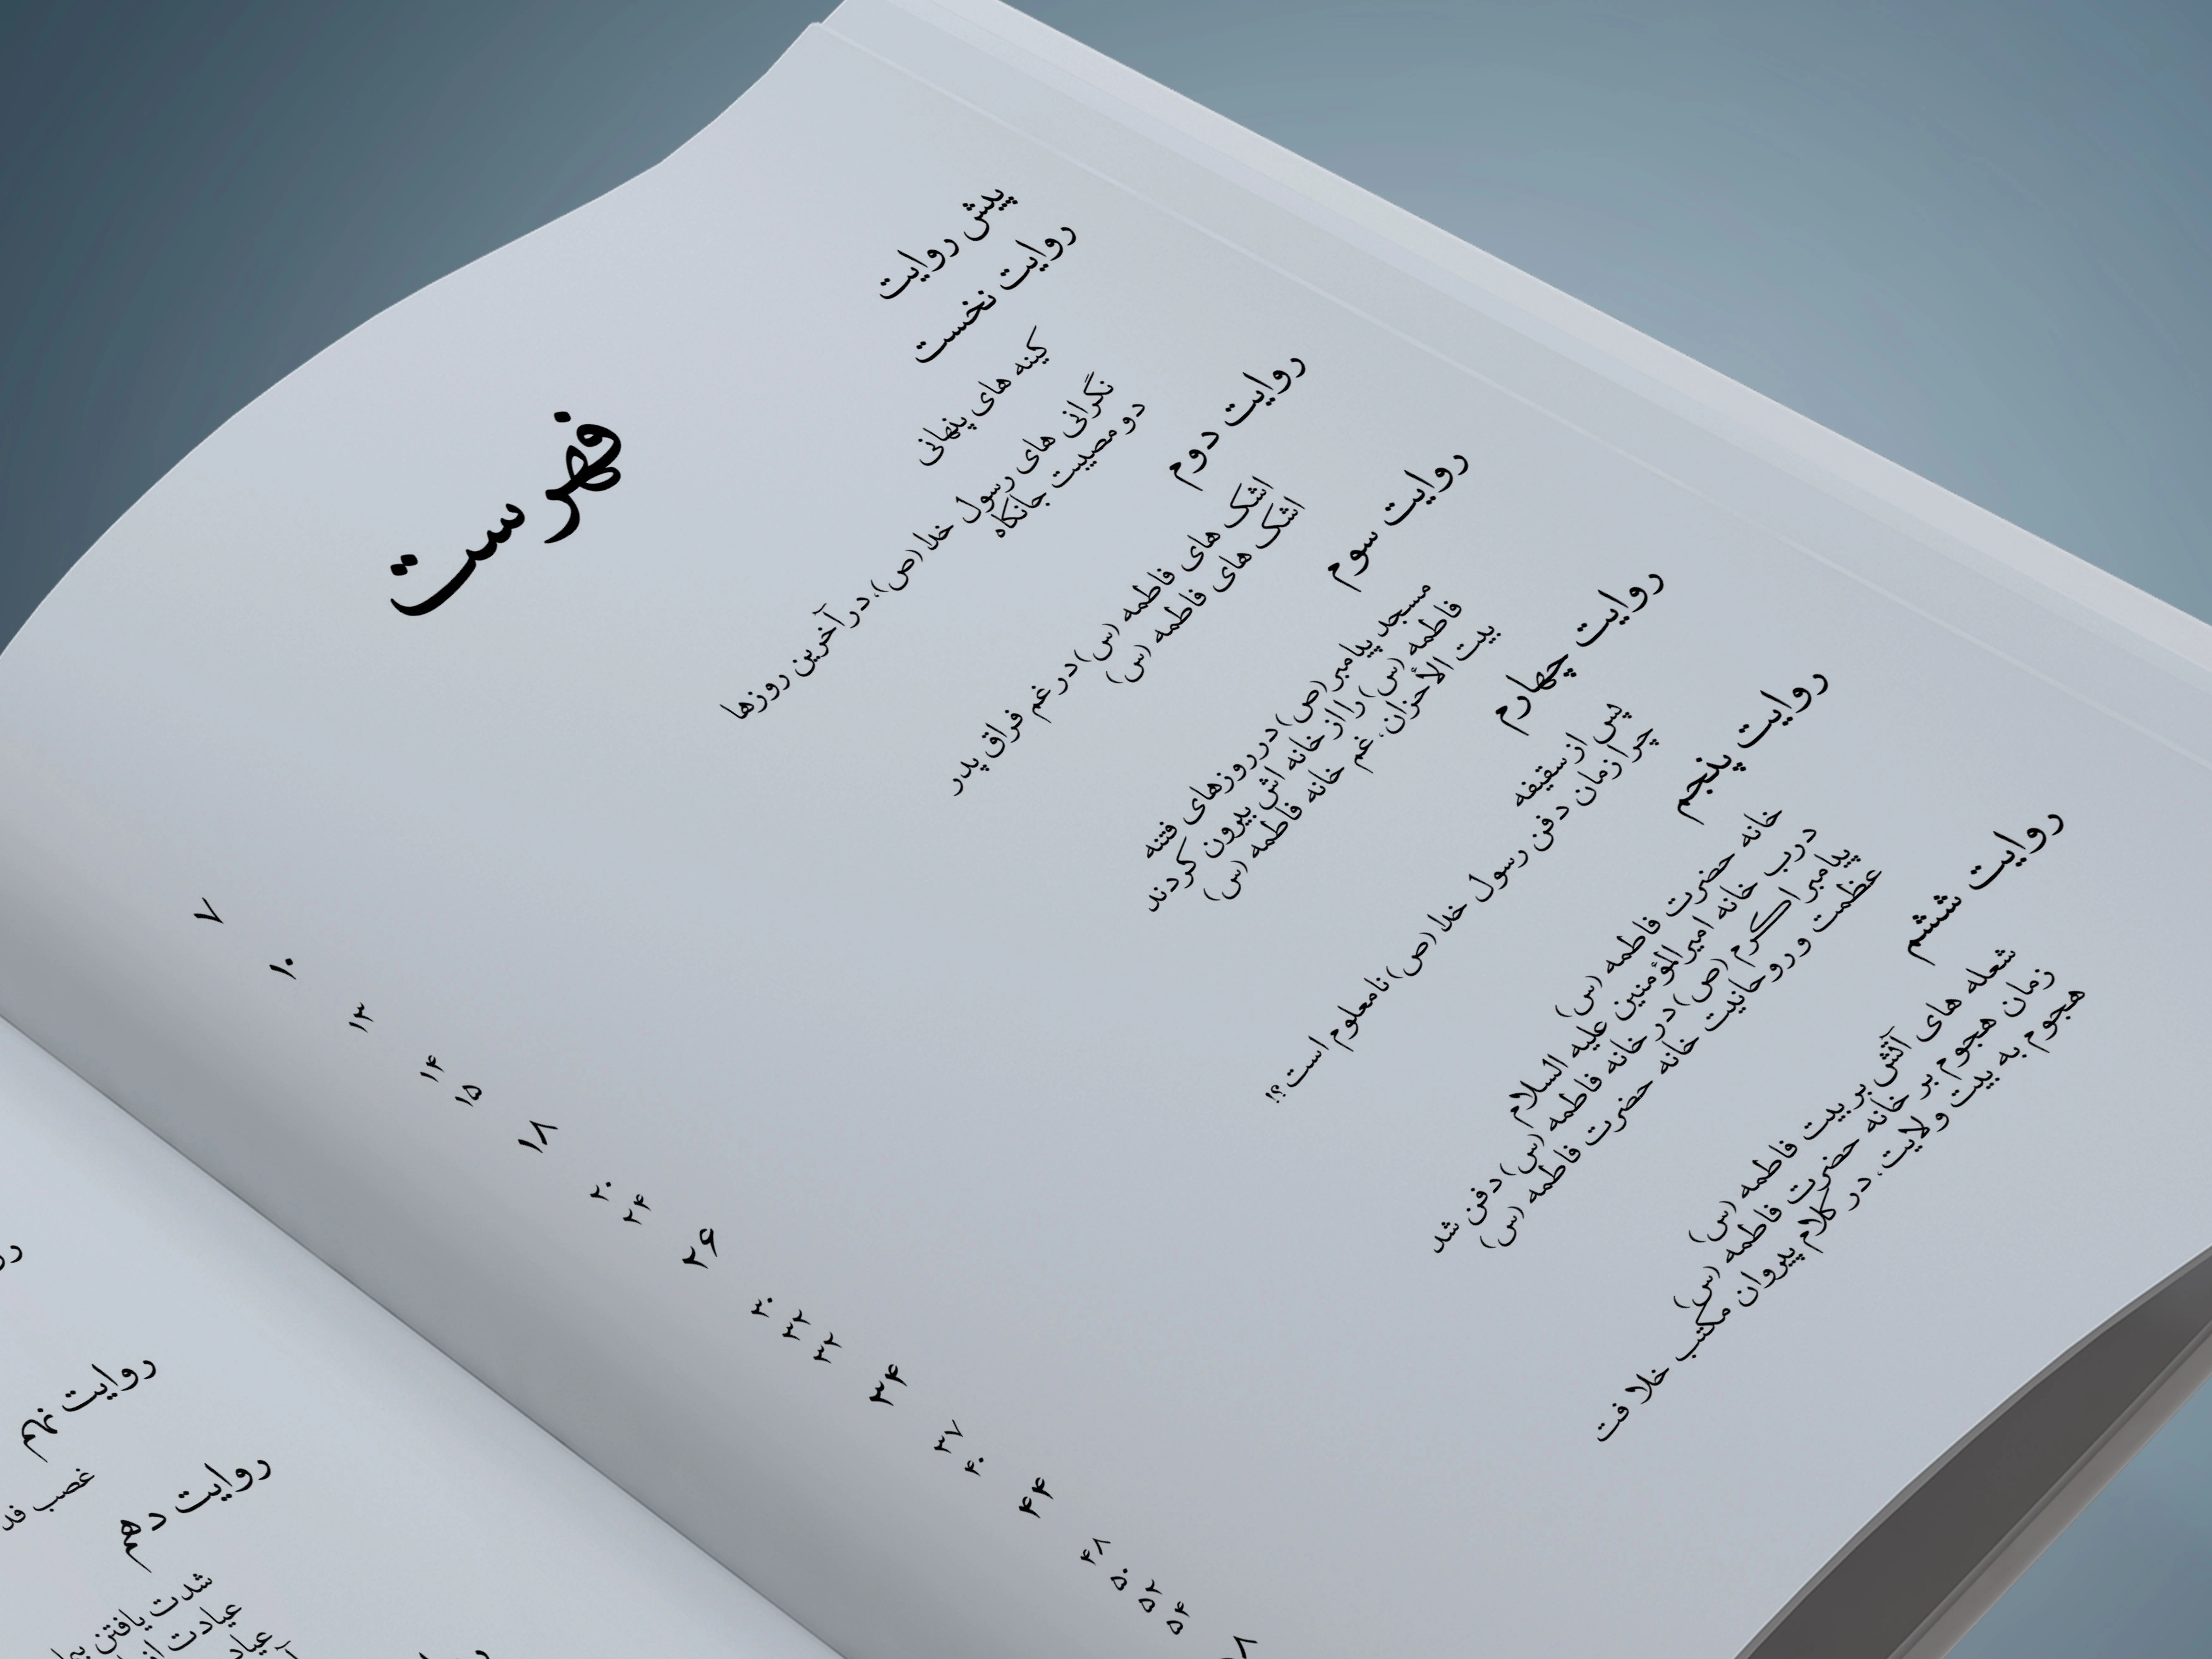 فهرست
پیش روایت
۷
روایت نخست
۱۰
کینه های پنهانی
۱۳
نگرانی های رسول خدا (ص)، در آخرین روزها
۱۴
دو مصیبت جانکاه
۱۵
روایت دوم
۱۸
اشک های فاطمه (س) در غم فراق پدر
۲۰
اشک های فاطمه (س)
۲۴
روایت سوم
۲۶
مسجد پیامبر (ص) در روزهای فتنه
۳۰
فاطمه (س) را از خانه اش بیرون کردند
۳۲
بیت الأحزان، غم خانه فاطمه (س)
۳۲
روایت چهارم
۳۴
پس از سقیفه
۳۷
چرا زمان دفن رسول خدا (ص) نامعلوم است؟!
۴۰
روایت پنجم
۴۴
خانه حضرت فاطمه (س)
۴۸
درب خانه امیرالمؤمنین علیه السلام
۵۰
پیامبر اکرم (ص) در خانه فاطمه (س) دفن شد
۵۲
عظمت و روحانیت خانه حضرت فاطمه (س)
۵۴
روایت ششم
شعله های آتش بر بیت فاطمه (س)
زمان هجوم بر خانه حضرت فاطمه (س)
هجوم به بیت ولایت، در کلام پیروان مکتب خلافت
روایت نهم
غصب
روایت دهم
شدت یافتن
عیادت